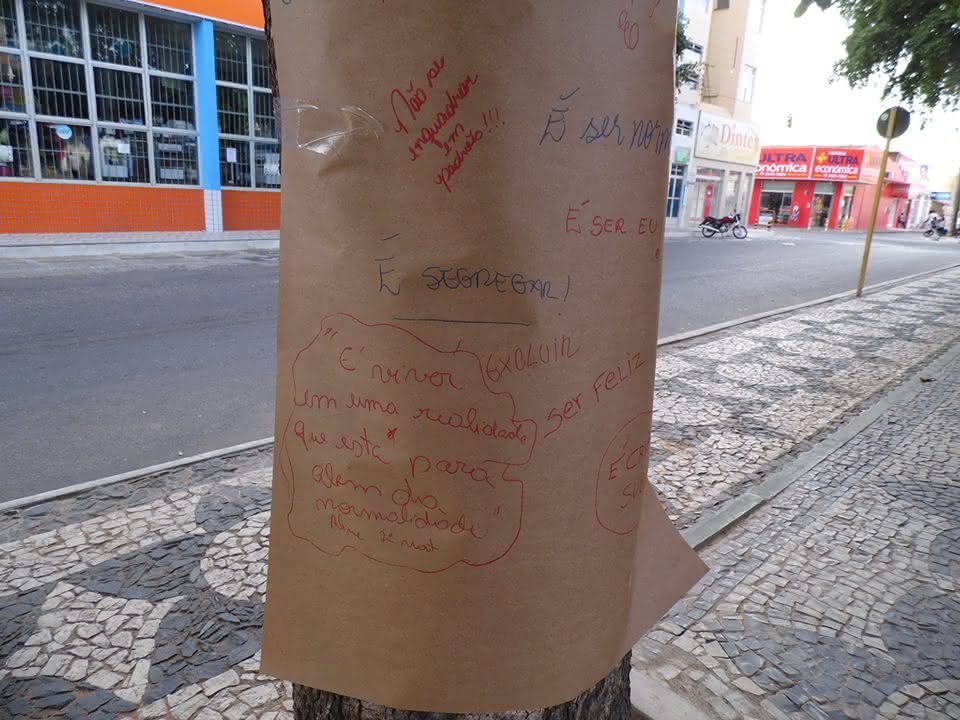 Não se
enquadrar
em
padrões!!!
É ser norm
É SER EU
!
É SEGREGAR!
EXCLUIR
SER FELIZ
"É viver
em uma realidade
que está para
alem da
normalidade"
É
Dinter
ULTRA
econômica
ULTRA
econômica